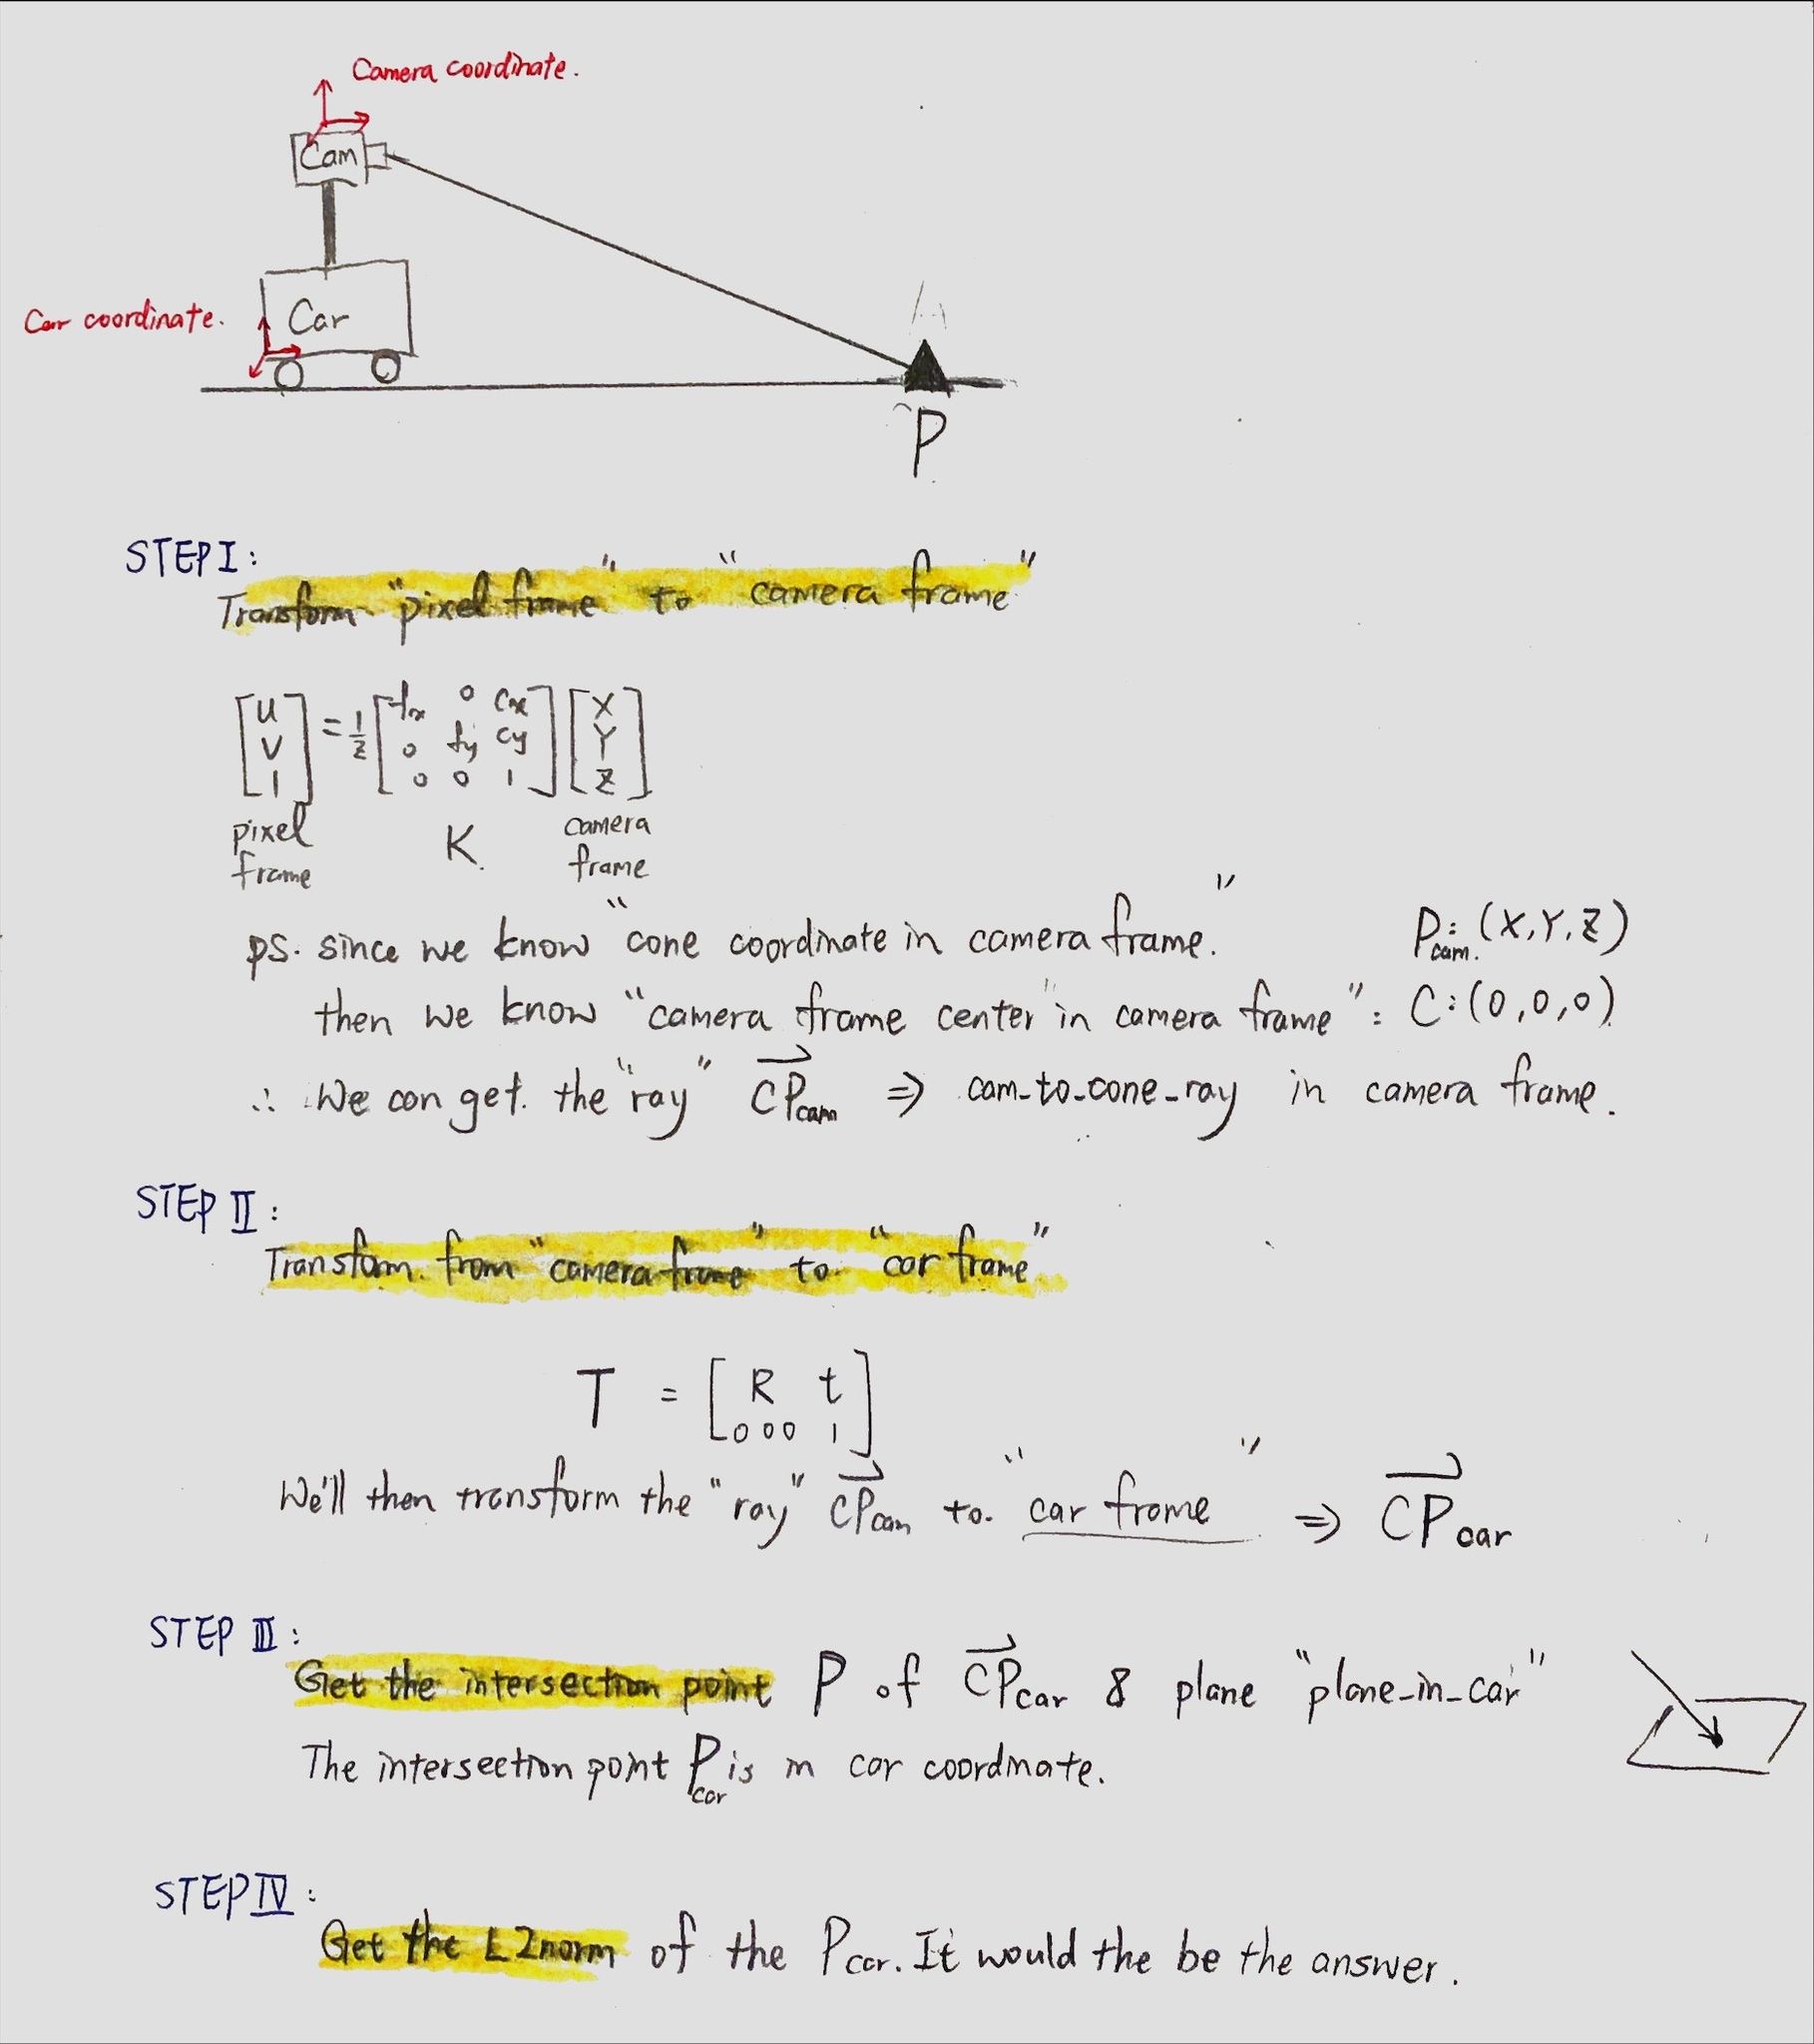 Camera coordinate.
Cam
Car coordinate.
Car
P
STEP I:
Transform "pixel frame" to "camera frame"
[u v 1] = 1/z [fx 0 cx 0 fy cy 0 0 1] [X Y Z]
pixel frame K. camera frame
ps. since we know "cone coordinate in camera frame." Pcam.: (X,Y,Z)
then we know "camera frame center" in camera frame": C:(0,0,0)
∴ We can get. the "ray" CPcam ⇒ cam-to-cone-ray in camera frame.
STEP II:
Transform. from "camera frame" to "car frame"
T = [R t 0 0 0 1]
We'll then transform the "ray" CPcam to. "car frame" ⇒ CPcar
STEP III:
Get the intersection point P of CPcar & plane "plane-in-car"
The intersection point Pcar is in car coordinate.
STEP IV:
Get the L2norm of the Pcar. It would the be the answer.